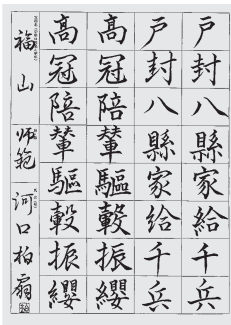 戶封八縣家給千兵
戶封八縣家給千兵
高冠陪輦驅轂振纓
高冠陪輦驅轂振纓
福山 師範 河口柏扇